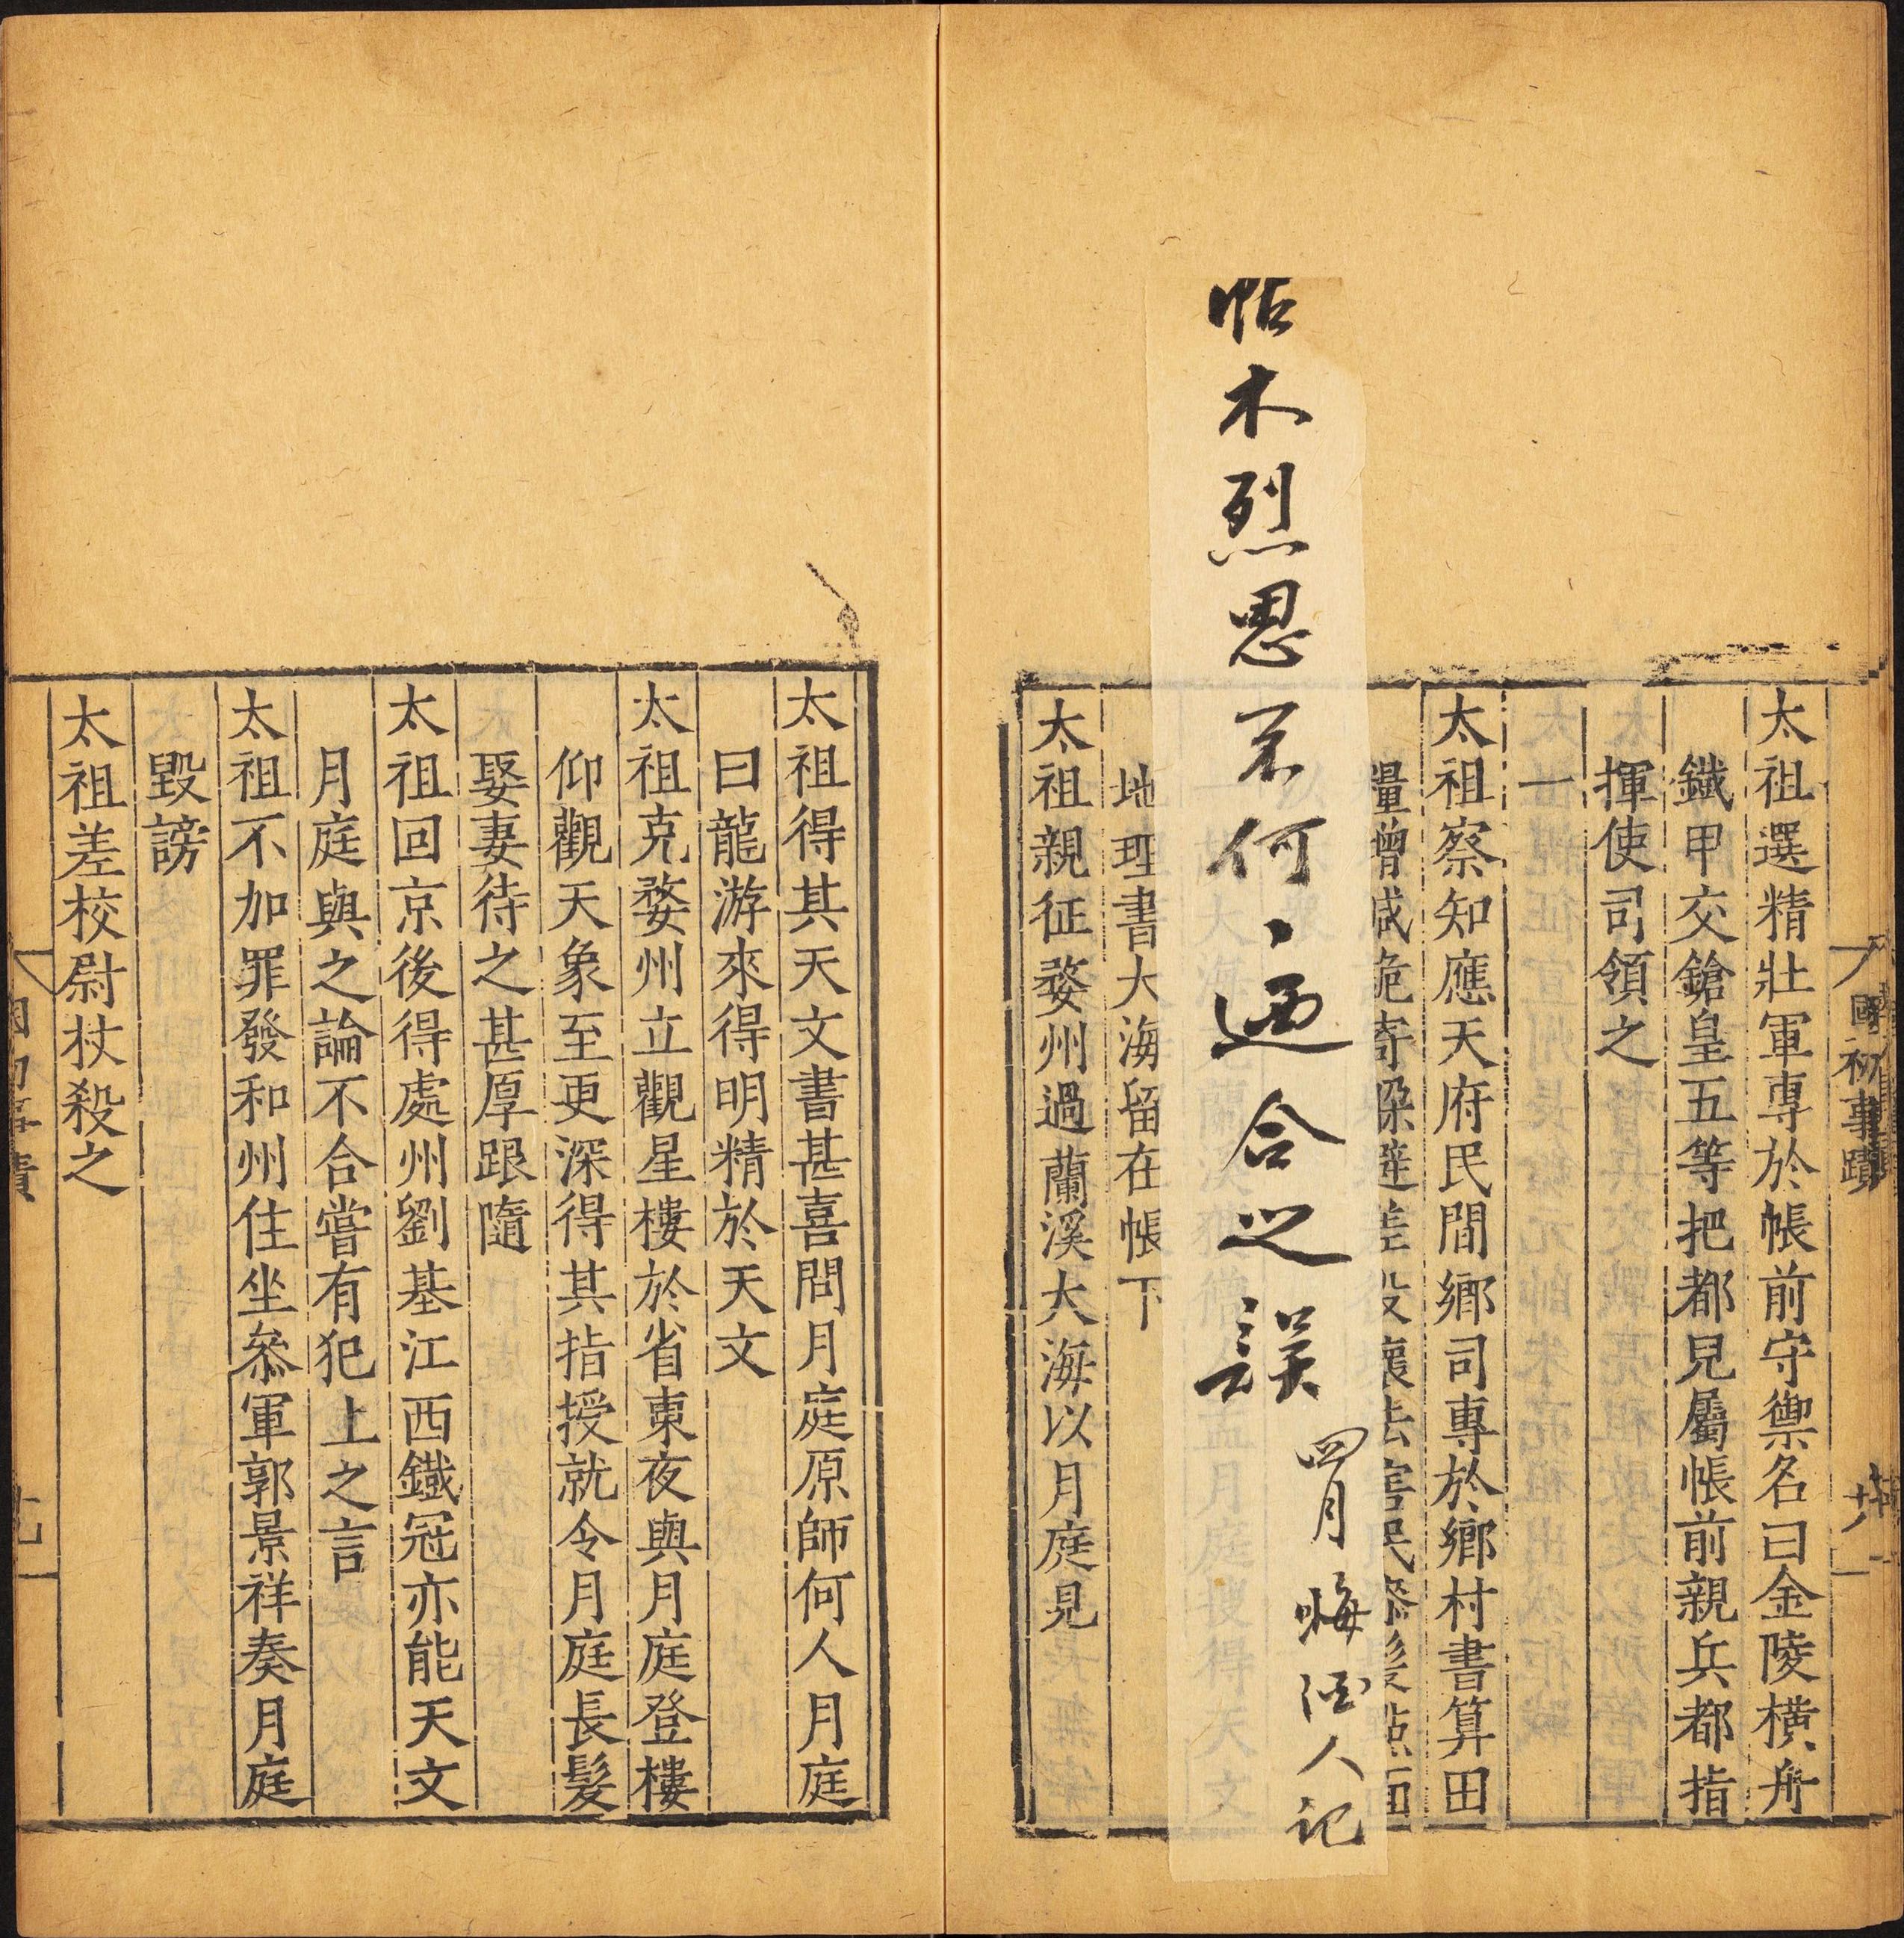 國初事蹟
太祖選精壯軍專於帳前守禦名曰金陵橫舟
鐵甲交鎗皇五等把都兒屬帳前親兵都指
揮使司領之
一
太祖察知應天府民間鄉司專於鄉村書算田
糧增減詭寄
害民
帖木烈思不何、迺合之誤
四月悔酒人記
地理書大海留在帳下
太祖親征婺州過蘭溪大海以月庭見
太祖得其天文書甚喜問月庭原師何人月庭
曰龍游來得明精於天文
太祖克婺州立觀星樓於省東夜與月庭登樓
仰觀天象至更深得其指授就令月庭長髮
娶妻待之甚厚跟隨
太祖回京後得處州劉基江西鐵冠亦能天文
月庭與之論不合嘗有犯上之言
太祖不加罪發和州住坐參軍郭景祥奏月庭
毀謗
太祖差校尉杖殺之